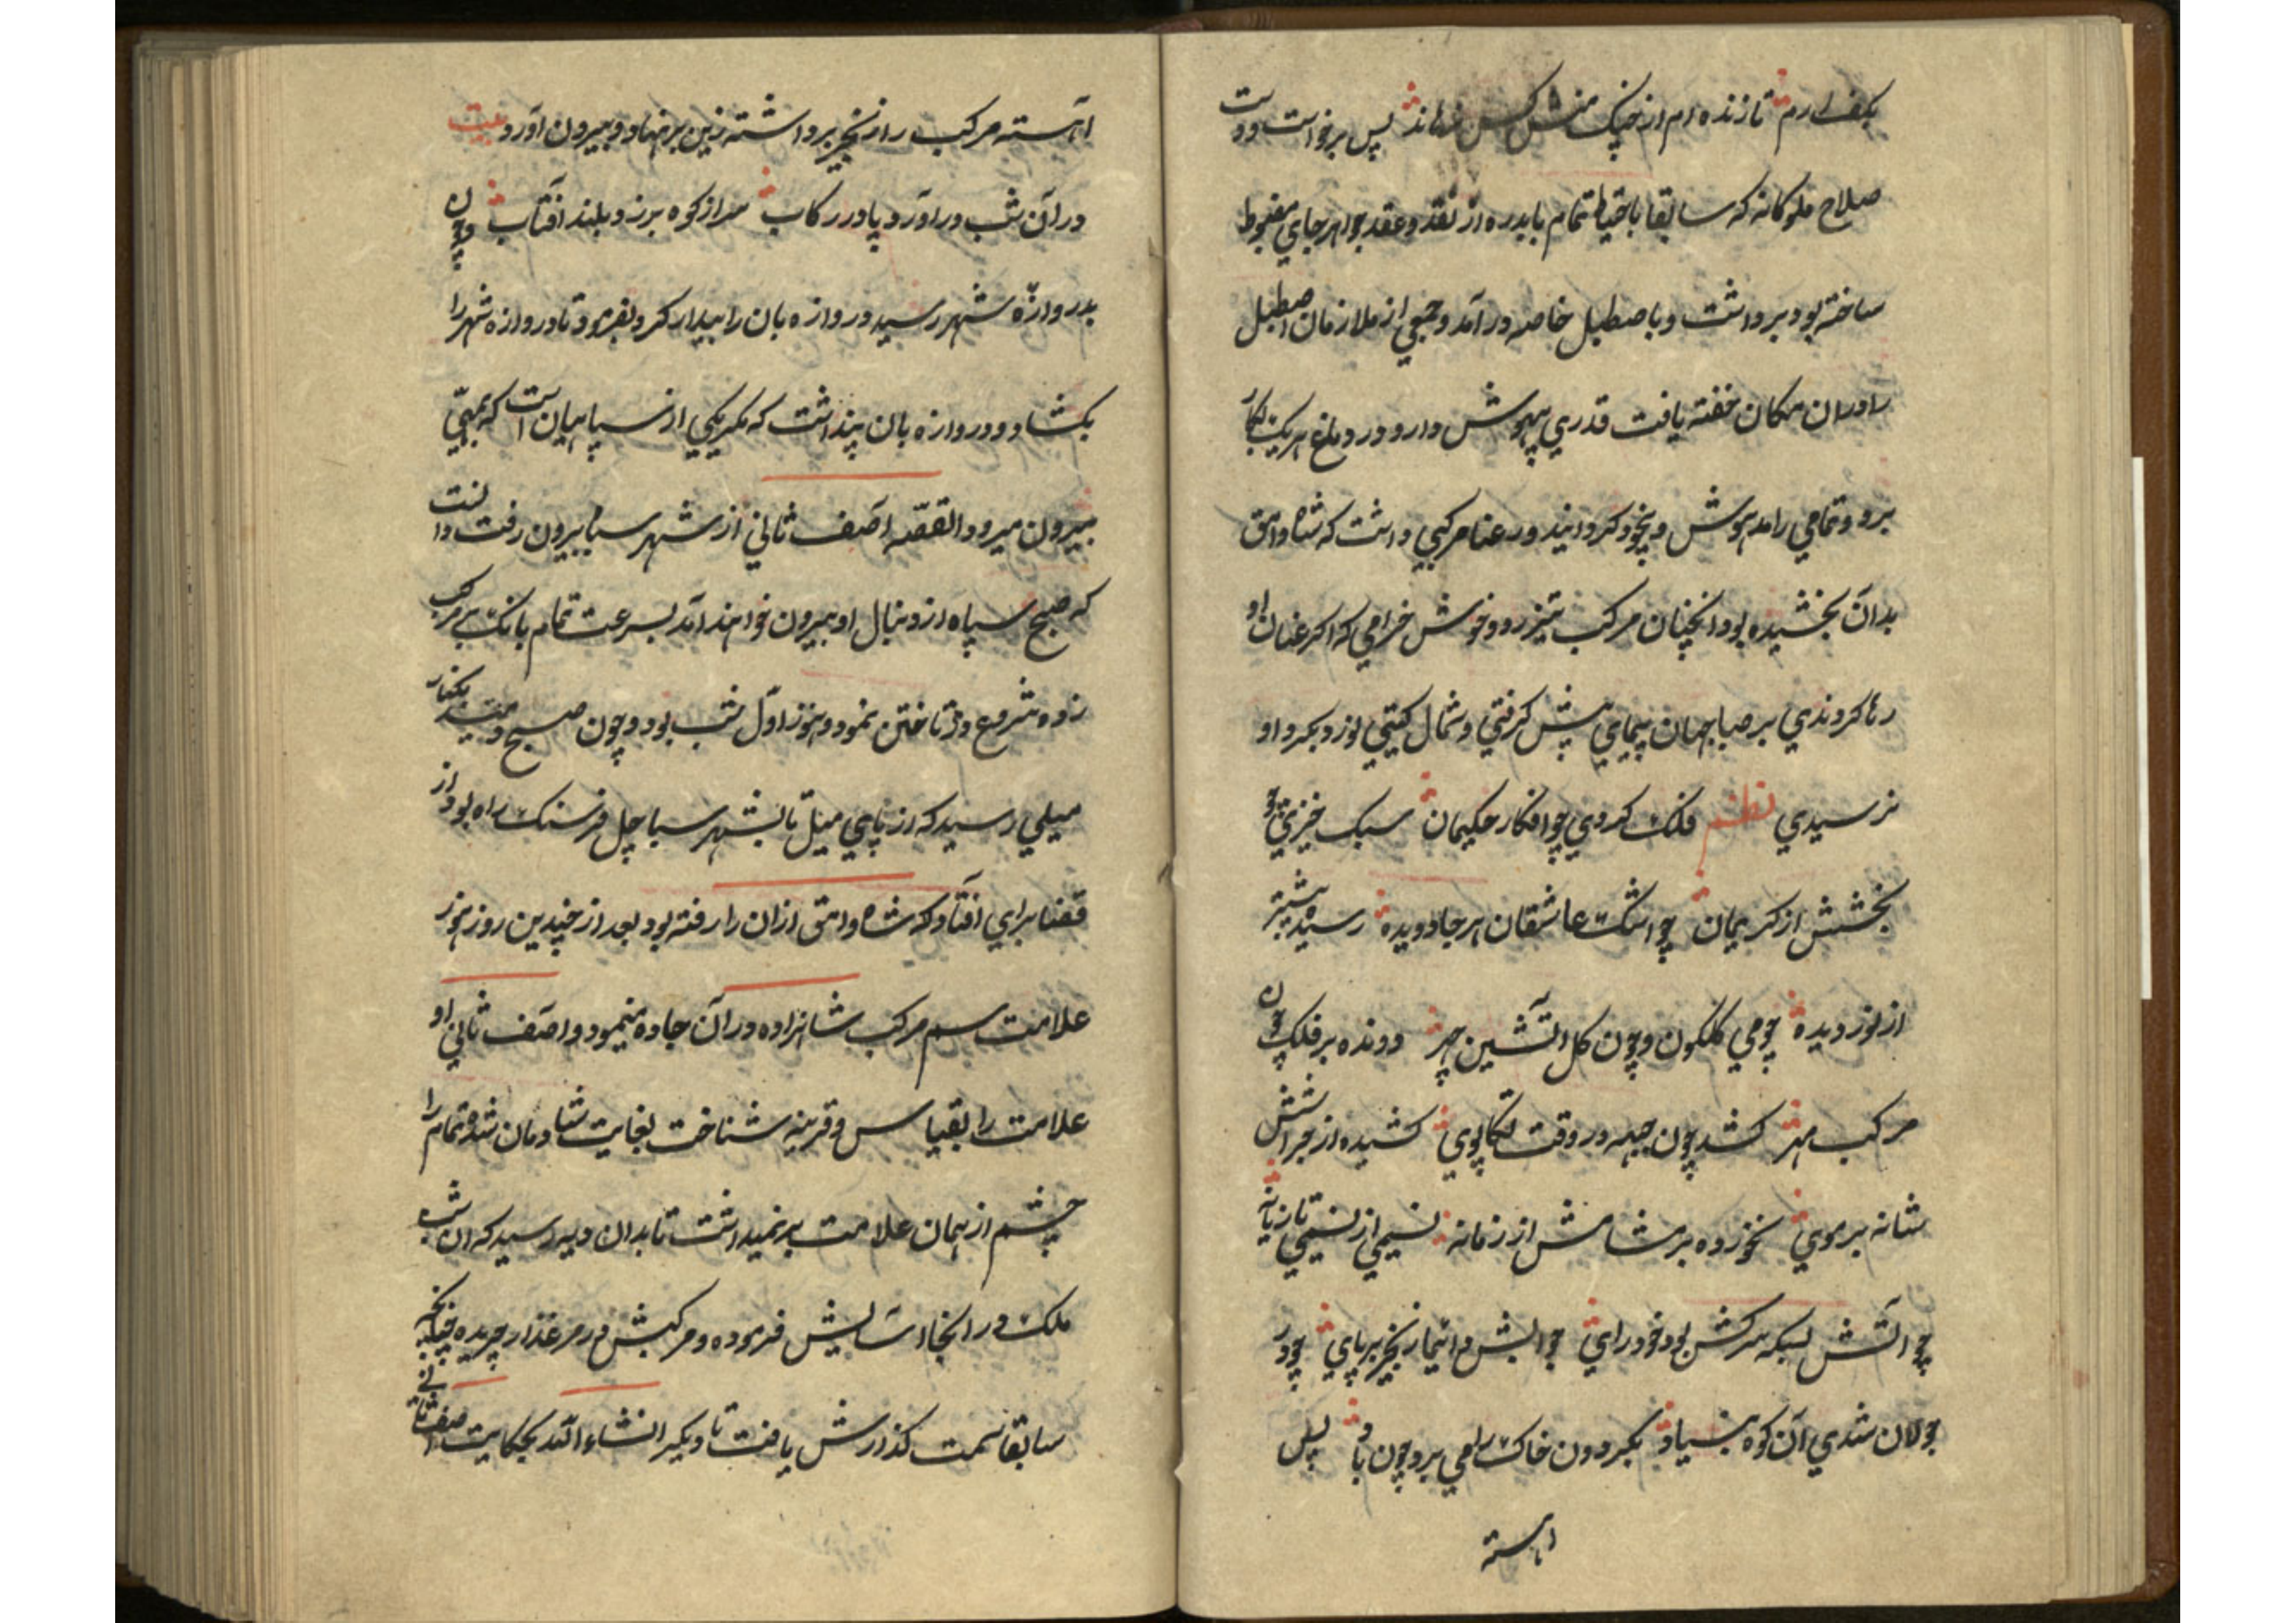 بکف ارم تا زنده ام از چنک منش کس نرهاند پس برخواست و دست
صلاح ملوکانه که سابقا باحتیاط تمام بایدره از نقد و عقد جواهر جای مضبوط
ساخته بود برداشت و باصطبل خاصه در آمد و جمعی از ملازمان اصطبل
را در ان مکان خفته یافت قدری بیهوش دارو در دماغ هر یک بکار
برد و تمامی را مدهوش و بیخود کردانید و رعنا مرکبی داشت که شاه وامق
بدان بخشیده بود انچنان مرکب تیز رو و خوش خرامی که اکر عنان او
رها کردندی بر صبا جهان پیمای پیش کرفتی و شمال کیتی نورد بکرد او
نرسیدی نظم فلک کردی چو افکار حکیمان سبک خیزی چو
بخشش از کریمان چو اشک عاشقان هر جا دویده رسیده پیشتر
از نور دیده چو می کلکون و چون کل اتشین چهر دونده بر فلک چون
مرکب مهر کشد چون جبهه در وقت تکاپوی کشیده از مجراش
شانه بر موی نخورده بر مشامش از زمانه نسیمی از نسیمی تازیانه
چو اتش بسکه سرکش بود خود رای چو ابش دایما زنجیر بر پای چو در
جولان شدی آن کوه بنیاد بکردون خاک را می برد چون باد پس
اهسته
آهسته مرکب را زنجیر برداشته زین بر نهاد و بیرون آورد بیت
در آن شب در اورد پا در رکاب سر از کوه بر زد بلند افتاب و چون
بدروازۀ شهر رسید دروازه بان را بیدار کرد بفرمود تا دروازه شهر را
بکشاد و دروازه بان پنداشت که مکر یکی از سپاهیان است که بمهمی
بیرون میرود القصه اصف ثانی از شهر سبا بیرون رفت دانست
که صبح سپاه از دنبال او بیرون خواهند آمد بسرعت تمام بانک بر مرکب
زده شروع در تاختن نمود و هنوز اول شب بود و چون صبح دمید بکنار
میلی رسید که از پای میل تا بشهر سبا چل فرسنک راه بود از
قضا براهی افتاد که شاه وامق ازان راه رفته بود بعد از چندین روز هنوز
علامت سم مرکب شاهزاده در آن جاده مینمود و اصف ثانی او
علامت را بقیاس و قرینه شناخت بغایت شادمان شد تمام را
چشم از همان علامت بر نمیداشت تا بدان دیر رسید که ان شب
ملک در انجا اسایش فرموده و مرکبش در مرغذار چریده چنانچه
سابقا سمت کذارش یافت تا دیکر انشاءالله بحکایت اصف ثانی